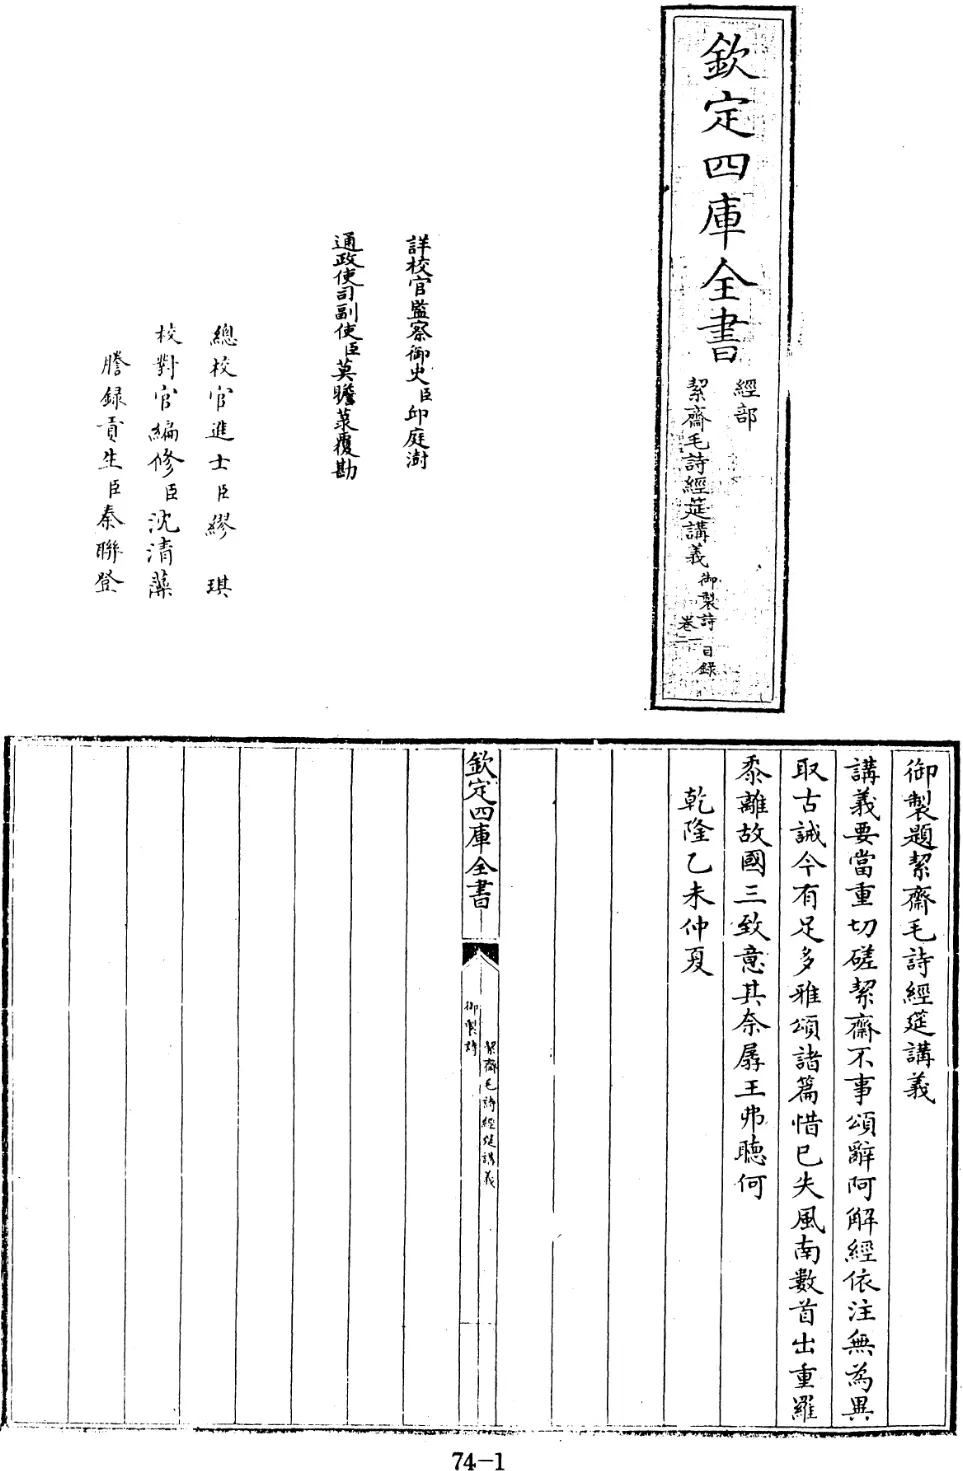 欽定四庫全書
經部
絜齋毛詩經筵講義
御製詩 目錄
卷一
二
詳校官監察御史臣邱庭澍
通政使司副使臣莫瞻菉覆勘
總校官進士臣繆 琪
校對官編修臣沈清藻
謄錄貢生臣秦聯登
御製題絜齋毛詩經筵講義
講義要當重切磋絜齋不事頌辭阿解經依注無為異
取古誡今有足多雅頌諸篇惜已失風南數首出重羅
黍離故國三致意其奈孱王弗聽何
乾隆乙未仲夏
欽定四庫全書
絜齋毛詩經筵講義
御製詩
74-1